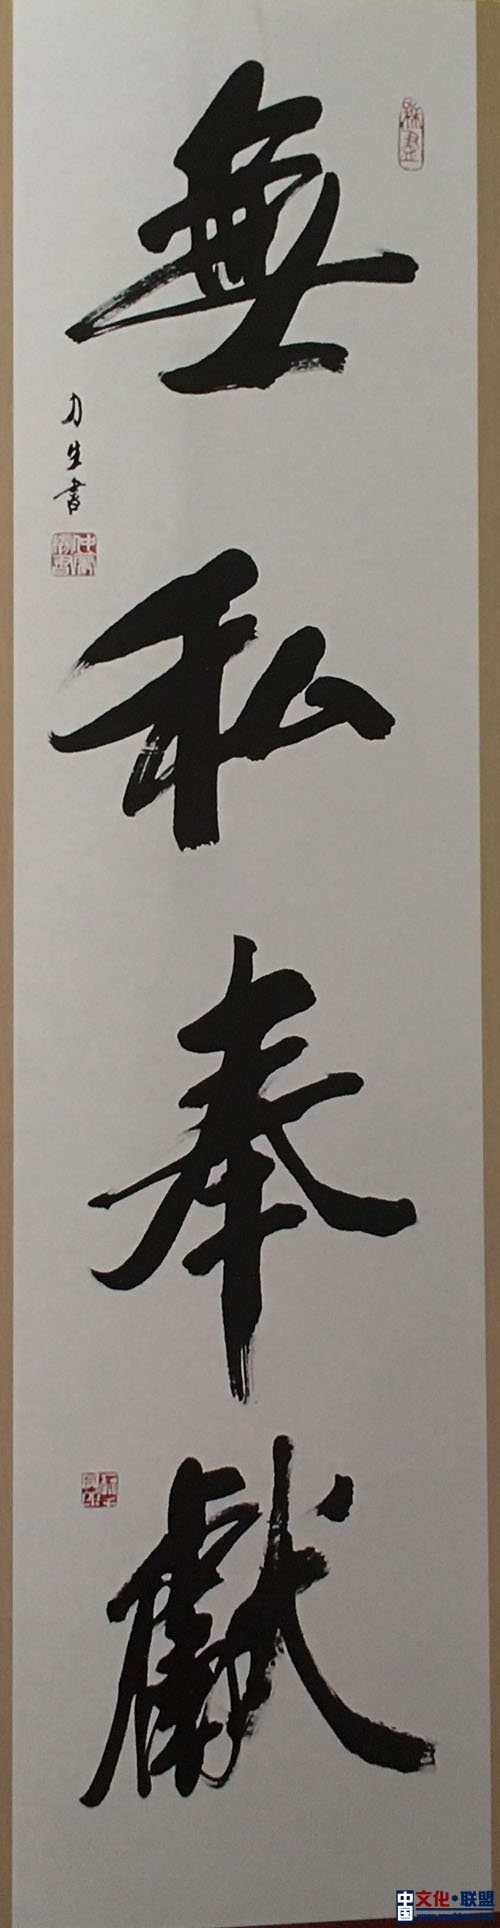 無私奉獻
力生書
中国文化·联盟